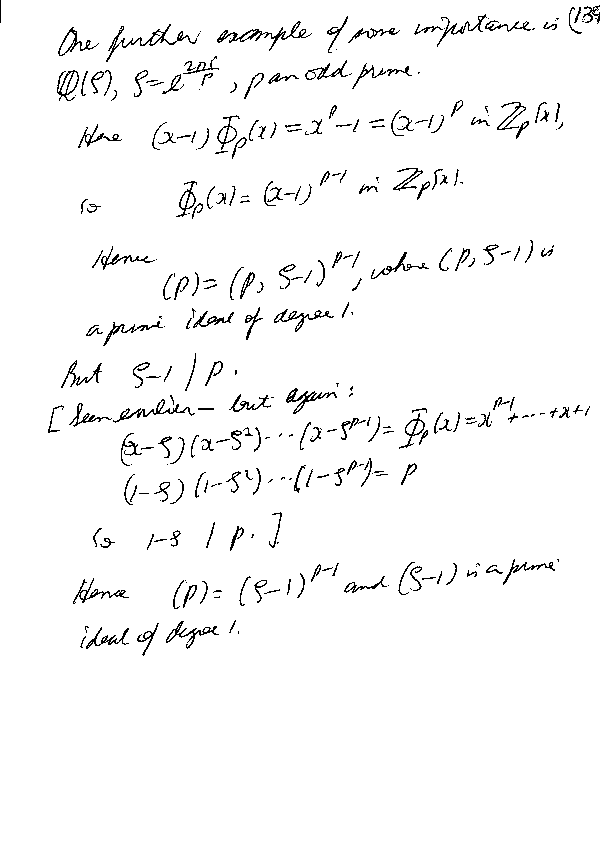 One further example of some importance is (139
ℚ(ζ), ζ = e^{2πi/p}, p an odd prime.
Here (x-1) Φ_p(x) = x^p - 1 = (x-1)^p in ℤ_p[x],
so Φ_p(x) = (x-1)^{p-1} in ℤ_p[x].
Hence
(p) = (p, ζ-1)^{p-1}, where (p, ζ-1) is
a prime ideal of degree 1.
But ζ-1 / p.
[Seen earlier — but again:
(x-ζ)(x-ζ²)···(x-ζ^{p-1}) = Φ_p(x) = x^{p-1}+···+x+1
(1-ζ)(1-ζ²)···(1-ζ^{p-1}) = p
so 1-ζ / p.]
Hence (p) = (ζ-1)^{p-1} and (ζ-1) is a prime
ideal of degree 1.